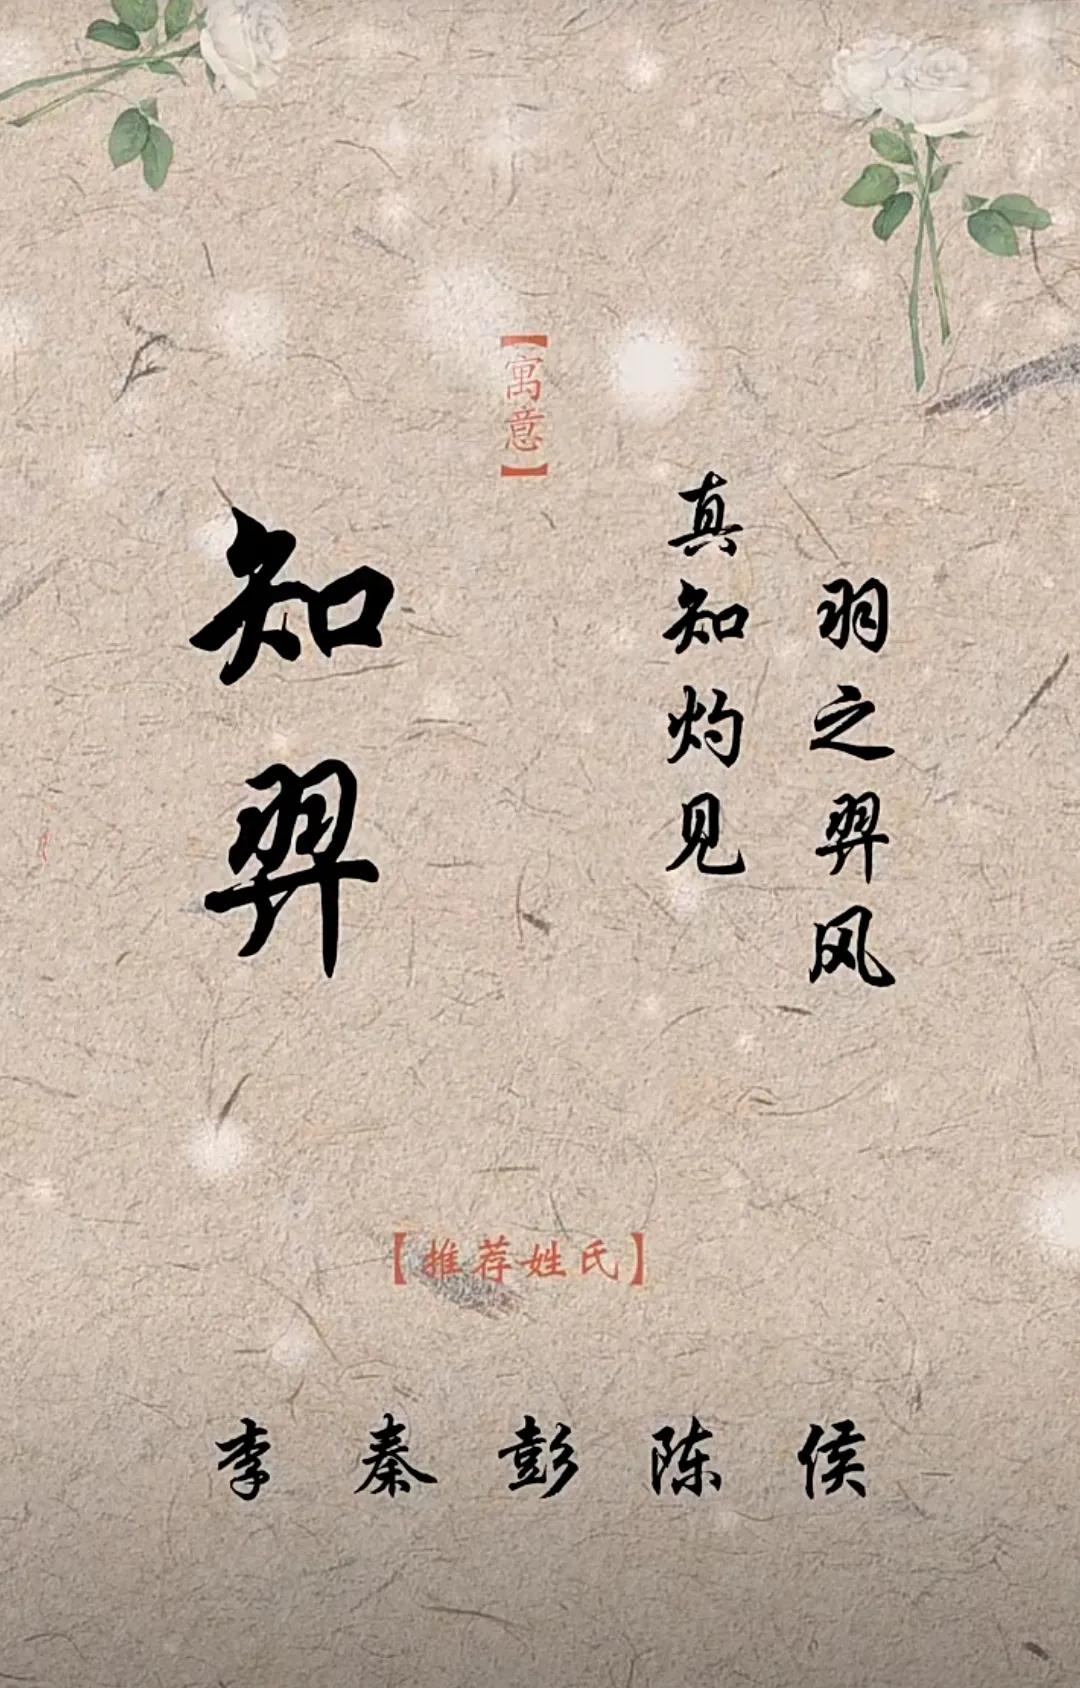 【寓意】
羽之羿风
真知灼见
知羿
【推荐姓氏】
李 秦 彭 陈 侯